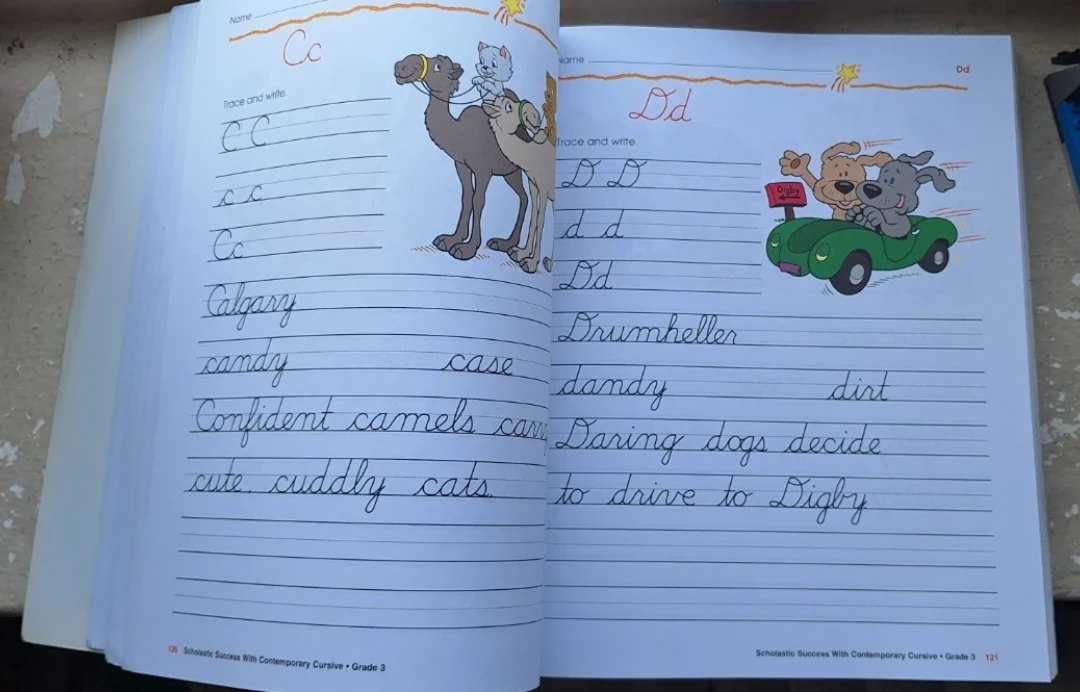 Name
Cc
Trace and write.
C C
c c
Cc
Calgary
candy case
Confident camels carry
cute, cuddly cats.
120 Scholastic Success With Contemporary Cursive • Grade 3
Name
Dd
Dd
Trace and write.
D D
Digby
d d
Dd
Drumheller
dandy dirt
Daring dogs decide
to drive to Digby.
Scholastic Success With Contemporary Cursive • Grade 3 121